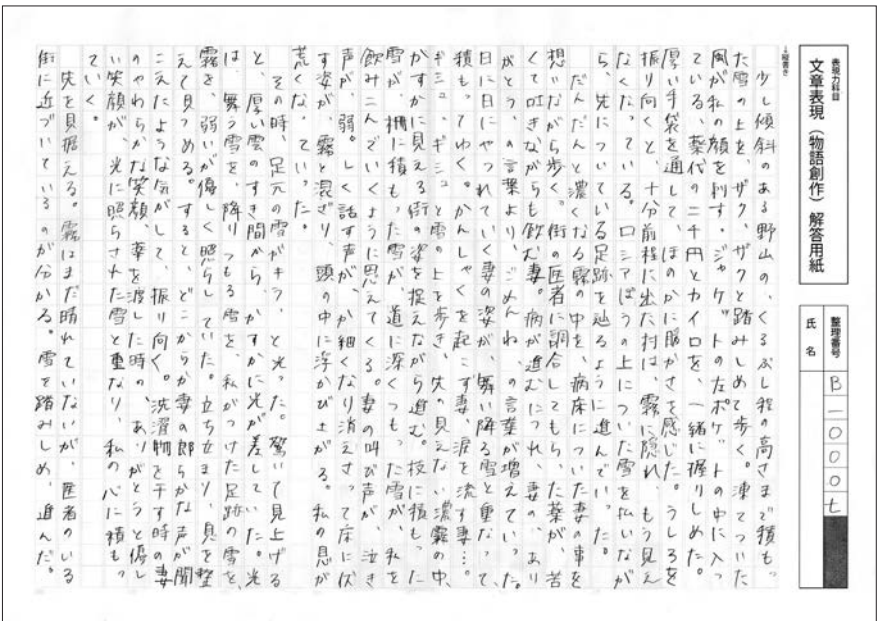 表現力科目
文章表現（物語創作）解答用紙
整理番号
B-000t
氏名
↓縦書き
少し傾斜のある野山の、くるぶし程の高さまで積もっ
た雪の上を、ザク、ザクと踏みしめて歩く。凍てついた
風が私の顔を刺す。ジャケットの左ポケットの中に入っ
ている、薬代の二千円とカイロを、一緒に握りしめた。
厚い手袋を通して、ほのかに脂かさを感じた。うしろを
振り向くと、十分前程に出た村は、霧に隠れ、もう見え
なくなっている。ロシアぼうの上についた雪を払いなが
ら、先についている足跡を辿るように進んでいった。
だんだんと濃くなる霧の中を、病床についた妻の事を
想いながら歩く。街の医者に調合してもらった薬が、苦
くて叱きながらも飲む妻。病が進むにつれ、妻の、あり
がとう、の言葉より、ごめんね、の言葉が増えていった。
日に日にやつれていく妻の姿が、舞い降る雪と重なって、
積もってゆく。かんしゃくを起こす妻、涙を流す妻…。
ギシュ、ギシュと雪の上を歩き、先の見えない濃霧の中、
かすかに見える街の姿を捉えながら進む。枝に積もった
雪が、柵に積もった雪が、道に深くつもった雪が、私を
飲みこんでいくように思えてくる。妻の叫び声が、泣き
声が、弱々しく話す声が、か細くなり消えさって床に伏
す姿が、霧と混ざり、頭の中に浮かびさがる。私の息が
荒くなっていった。
その時、足元の雪がキラッ、と光った。驚いて見上げる
と、厚い雲のすき間から、かすかに光が差していた。光
は、舞う雪を、降りつもる雪を、私がつけた足跡の雪を、
霧を、弱いが優しく照らしていた。立ち止まり、息を整
えて見つめる。すると、どこからか妻の郎らかな声が聞
こえたような気がして、振り向く。洗濯物を干す時の妻
のやわらかな笑顔、薬を渡した時の、ありがとうと優し
い笑顔が、光に照らされた雪と重なり、私の心に積もっ
ていく。
先を見据える。霧はまだ晴れていないが、医者のいる
街に近づいているのが分かる。雪を踏みしめ、進んだ。